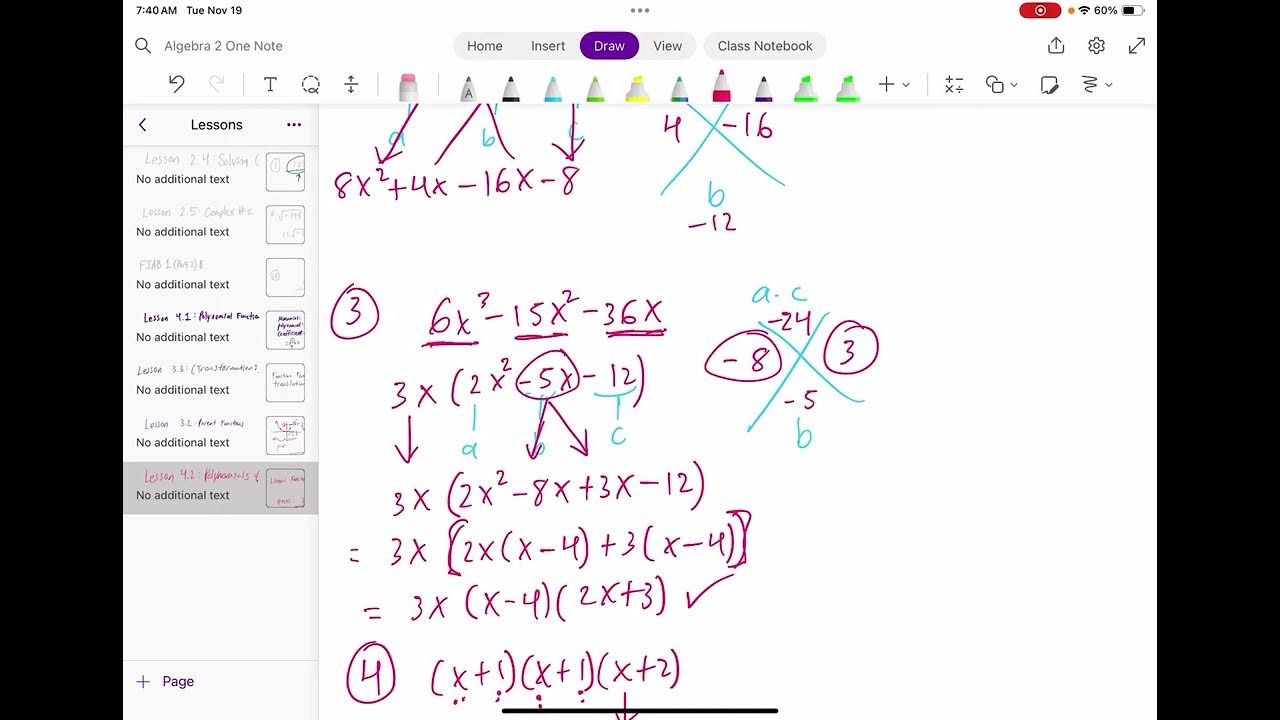 7:40 AM Tue Nov 19
60%
Algebra 2 One Note
Home Insert Draw View Class Notebook
T
A
Lessons
Lesson 2.4: Solving
No additional text
Lesson 2.5: Complex #s
No additional text
No additional text
Lesson 4.1: Polynomial Functio
No additional text
Lesson 3.3: (Transformations
No additional text
Lesson 3.2: Parent Functions
No additional text
Lesson 4.2: Polynomials &
No additional text
+ Page
a b c
8x²+4x-16x-8
4 -16
b
-12
③ 6x³-15x²-36x
3x(2x²-5x-12)
a b c
a·c
-24
-8 3
-5
b
3x(2x²-8x+3x-12)
= 3x[2x(x-4)+3(x-4)]
= 3x(x-4)(2x+3) ✓
④ (x+1)(x+1)(x+2)